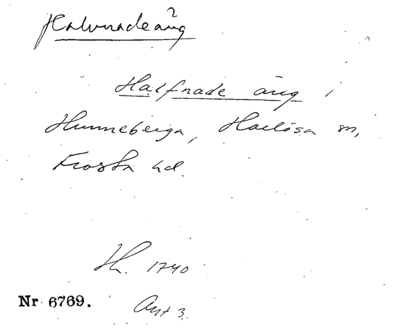 Halvnadeäng
Halfnade äng i
Hunneberga, Harlösa sn,
Frosta hd.
H. 1740
Nr 6769.
Ant 3.